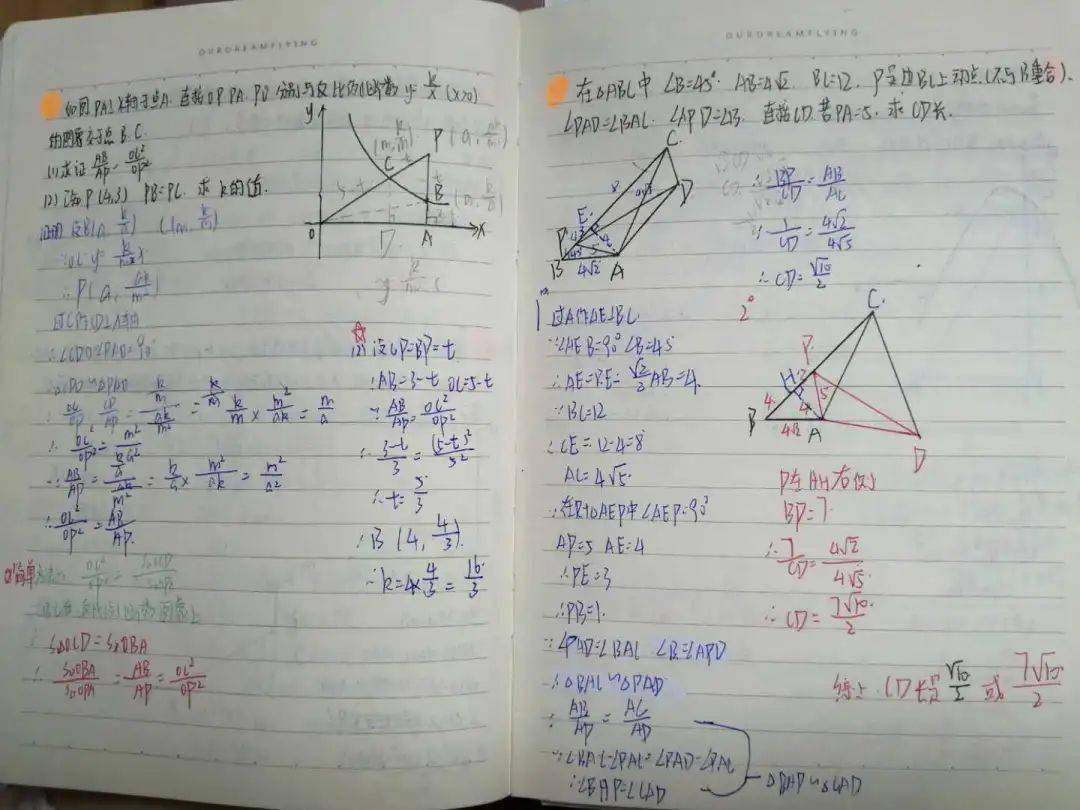 OURDREAMFLYING
如图PA⊥x轴于点A. 连接OP. PA, PO 分别与反比例函数 y=k/x (x>0)
的图象交于点B.C.
(1) 求证 AB/AP = OC²/OP²
(2) 若P(4,3) PB=PC. 求k的值.
y
P(a,
C
B
O
D
A
x
证明 设B(a, k/a)
∴P(a, ak/m²)
∴∠CDO=∠PAD=90°
k/m × m²/ak = m/a
∴ OC²/OP² = m²/a²
= k/a × m²/ak = m²/a²
∴ OC²/OP² = AB/AP.
(1)简单
S△OCD=S△OBA
∴ S△OBA/S△OPA = AB/AP = OC²/OP²
(2) 设CP=BP=t
∴AB=3-t OC=5-t
∵ AB/AP = OC²/OP²
∴ (3-t)/3 = (5-t)²/5²
∴ t=5/3
∴B (4, 4/3).
∴k=4×4/3=16/3
OURDREAMFLYING
在△ABC中 ∠B=45°. AB=4√2. BC=12. P是边BC上动点(不与B重合).
∠PAD=∠BAC. ∠APD=∠B. 连接CD. 若PA=5. 求CD长.
C.
D
E.
P
B
4√2
A
∴ BP/CD = AB/AC
∴ 1/CD = 4√2/4√5
∴ CD=√10/2
1° 过A作AE⊥BC
∵∠AEB=90° ∠B=45°
∴AE=BE=√2/2AB=4.
∵BC=12
∴CE=12-4=8
AC=4√5
∵在Rt△AEP中∠AEP=90°
AP=5 AE=4
∴PE=3
∴PB=1.
∵∠PAD=∠BAC ∠B=∠APD
∴△BAC∽△PAD
∴ AB/AP = AC/AD
∵∠BAC-∠PAC=∠PAD-∠PAC
∴∠BAP=∠CAD
△BAP∽△CAD
2°
C.
P.
H
4
5
4.
B
4√2
A
D
P在AH右侧
BP=7
∴ 7/CD = 4√2/4√5
∴ CD=7√10/2
综上. CD长为√10/2 或 7√10/2